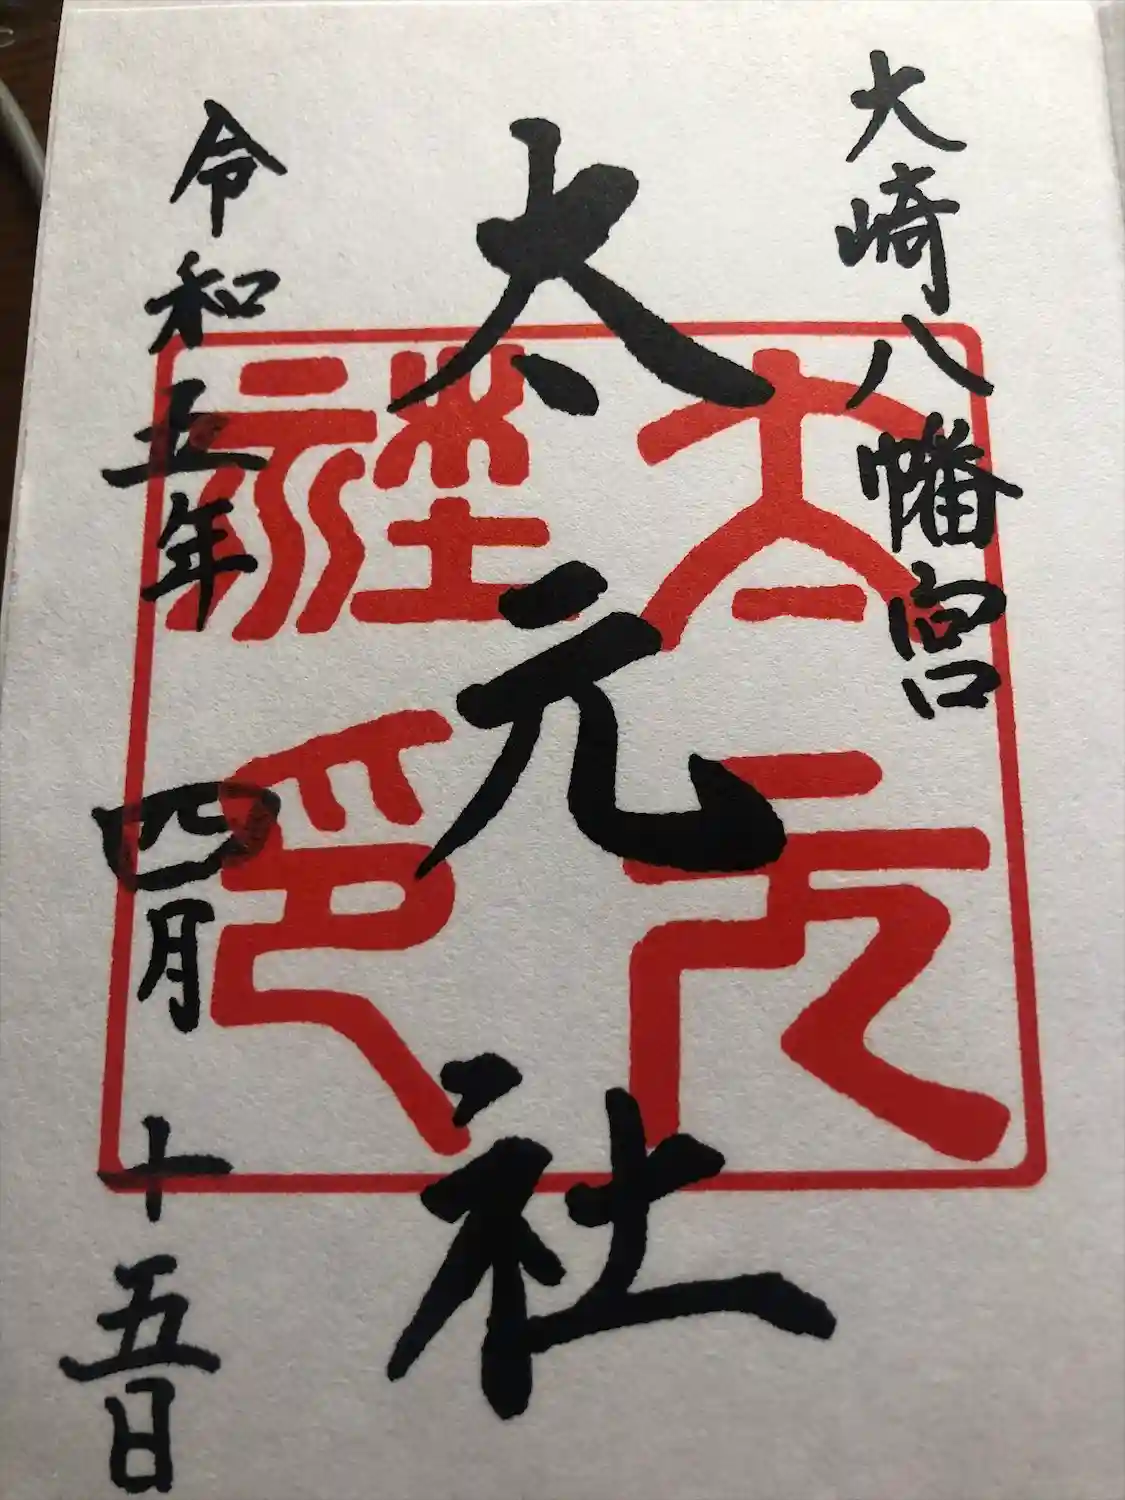 大崎八幡宮
太元社
太元社印
令和五年四月十五日